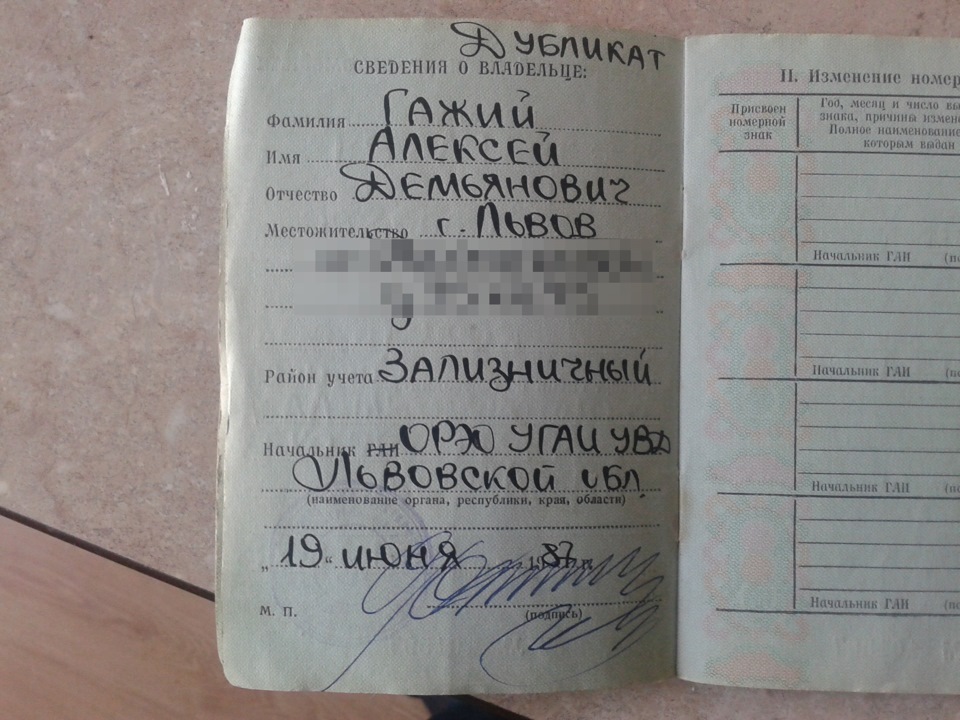 ДУБЛИКАТ
СВЕДЕНИЯ О ВЛАДЕЛЬЦЕ:
Фамилия ГАЖИЙ
Имя АЛЕКСЕЙ
Отчество ДЕМЬЯНОВИЧ
Местожительство г. ЛЬВОВ
Район учета ЗАЛИЗНИЧНЫЙ
Начальник ГАИ ОРЭО УГАИ УВД
ЛЬВОВСКОЙ ОБЛ.
(наименование органа, республики, края, области)
„19“ ИЮНЯ 1987 г.
М. П.
(подпись)
II. Изменение номер
Присвоен номерной знак
Год, месяц и число вы
знака, причины измене
Полное наименование
которым выдан
Начальник ГАИ (по
Начальник ГАИ (по
Начальник ГАИ (по
Начальник ГАИ (по